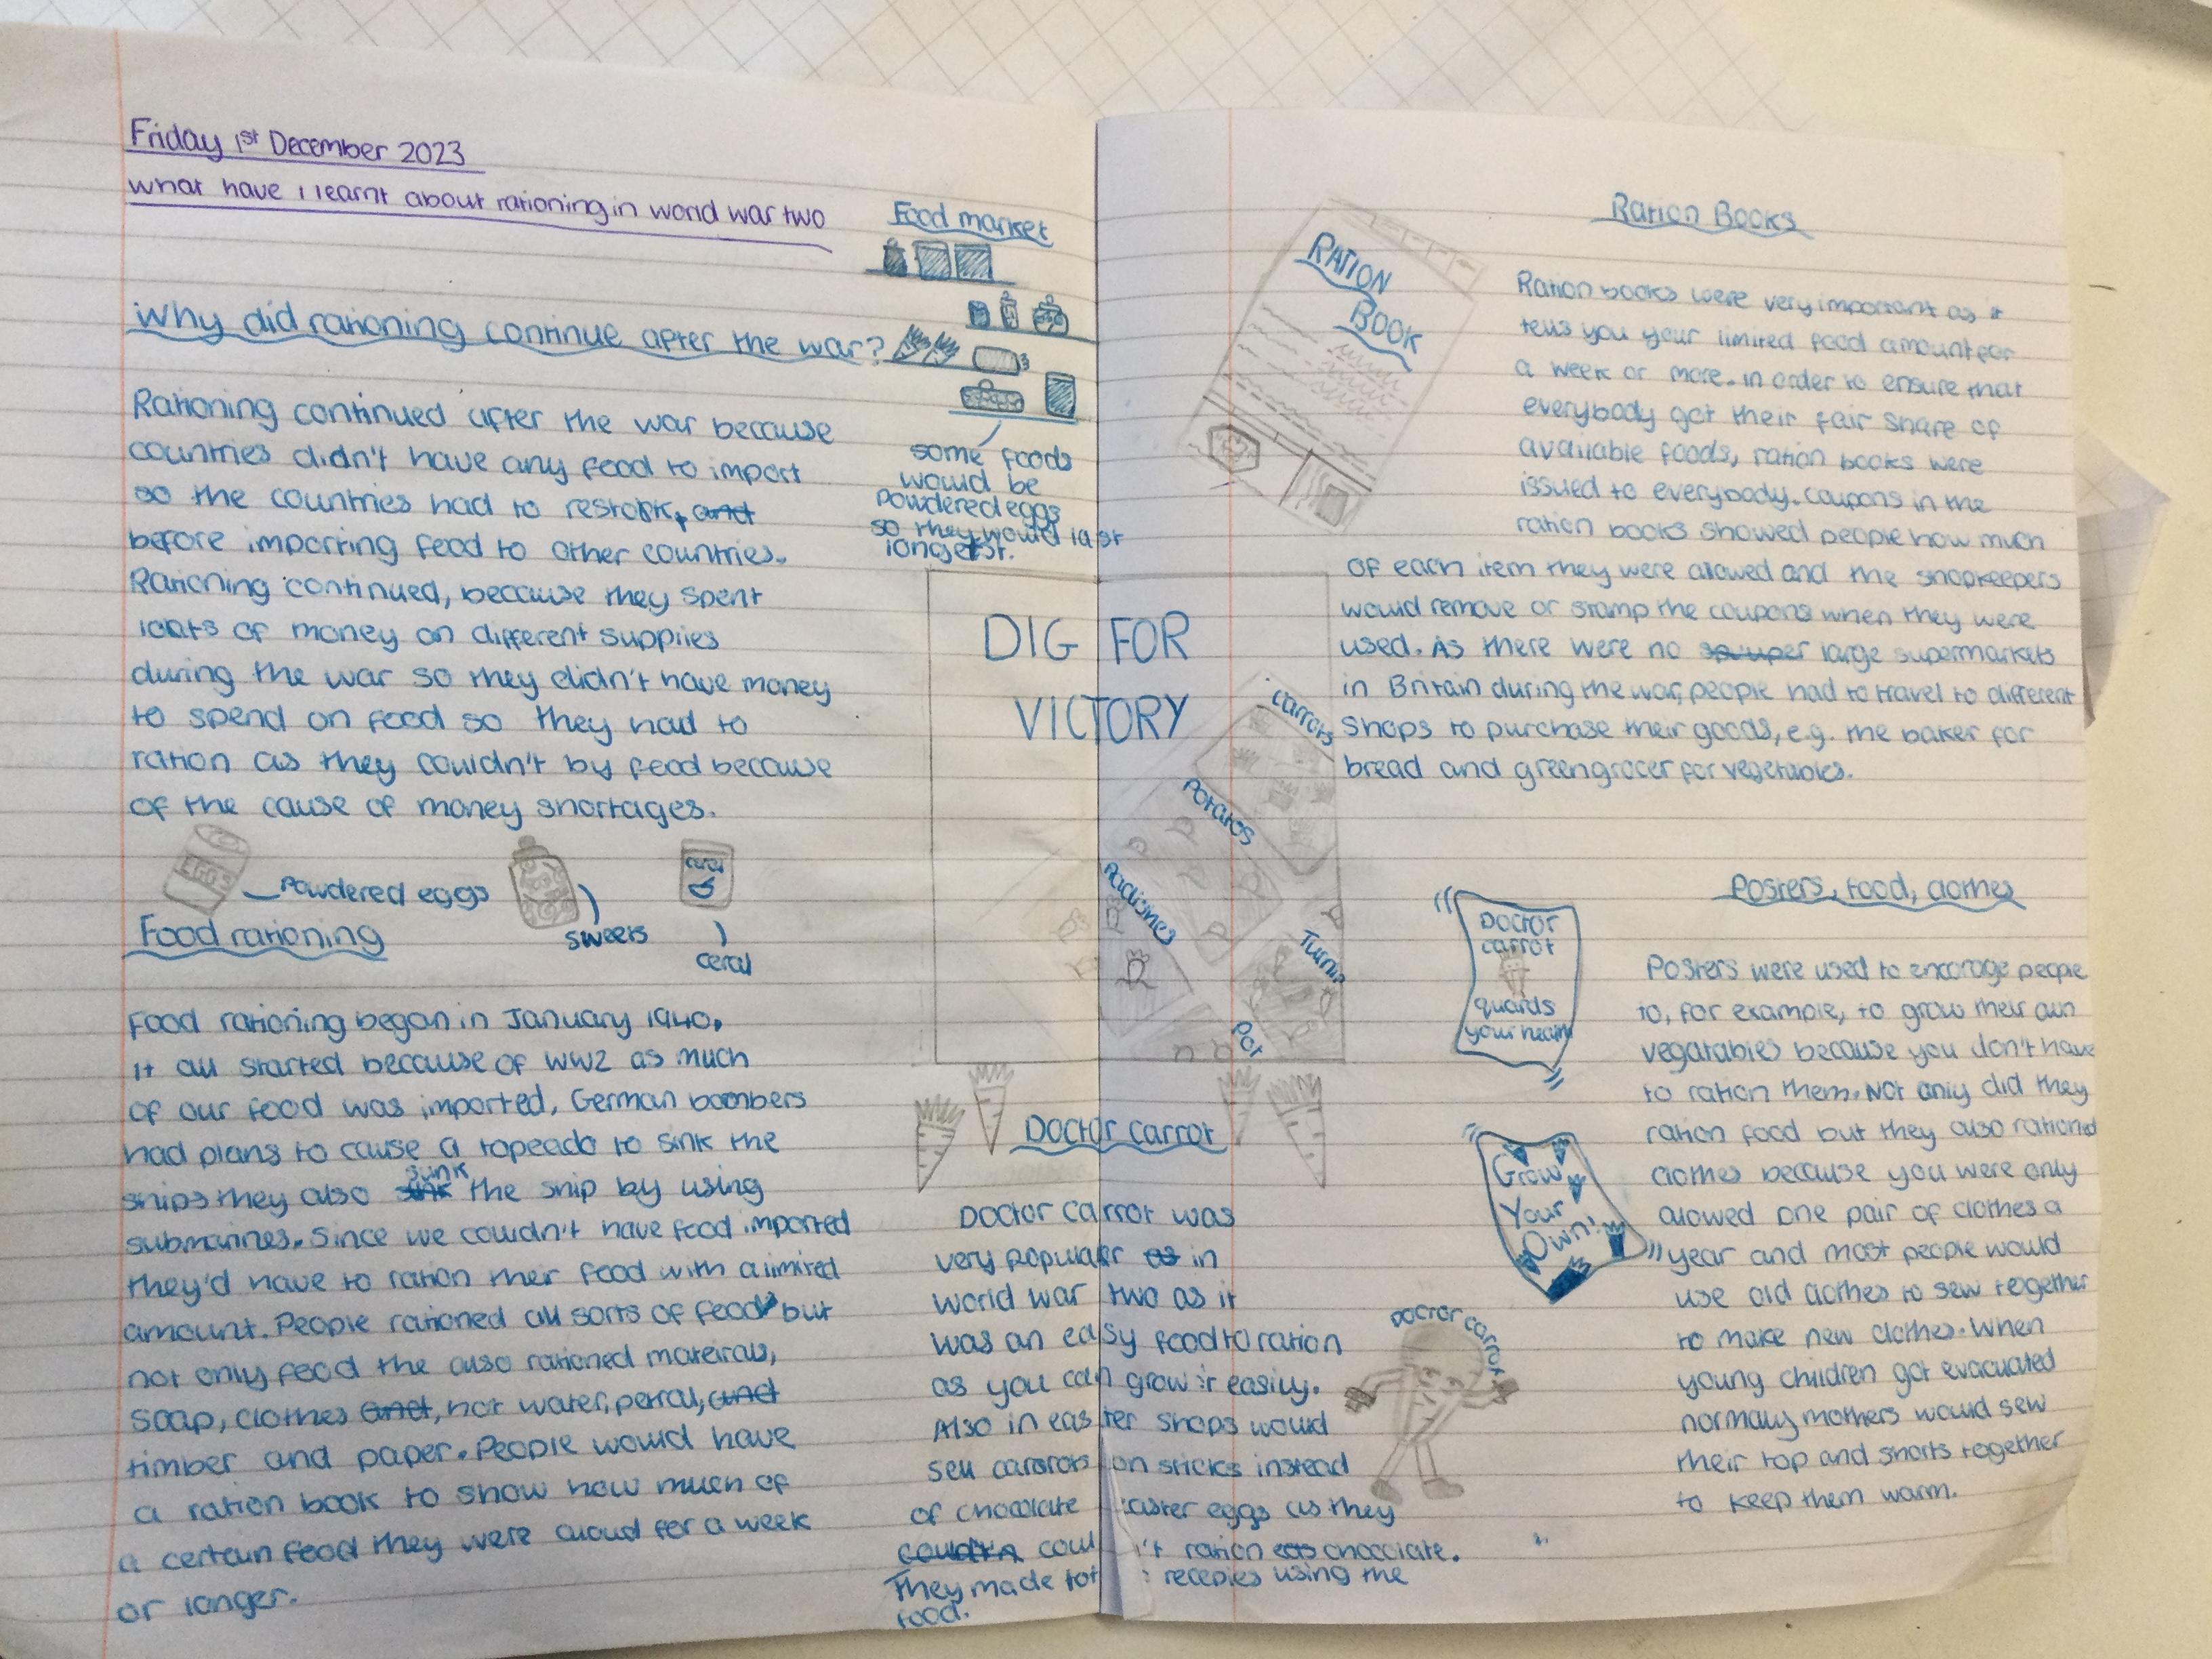 Friday 1st December 2023
What have I learnt about rationing in world war two
Food market
Why did rationing continue after the war?
Rationing continued after the war because
countries didn't have any food to import
so the countries had to restork, and
before importing food to other countries.
Rationing continued, because they spent
loats of money on different supplies
during the war so they didn't have money
to spend on food so they had to
ration as they couldn't by food because
of the cause of money shortages.
some foods
would be
Powdered eggs
so they would last
longest.
EGGS
Powdered eggs
sweets
ceral
ceral
Food rationing
Food rationing began in January 1940.
It all started because of WW2 as much
of our food was imported, German boombers
had plans to cause a topeado to sink the
ships they also sunk the ship by using
submarines. Since we couldn't have food imported
they'd have to ration their food with a limited
amount. People rationed all sorts of food but
not only food the also rationed mateirals,
soap, clothes and, hot water, petral, and
timber and paper. People would have
a ration book to show how much of
a certain food they were aloud for a week
or longer.
DIG FOR
VICTORY
Carrots
Potatos
Radishes
Turnip
Pot
Doctor Carrot
Doctor carrot was
very popular as in
world war two as it
was an easy food to ration
as you can grow it easily.
Also in easter shops would
sell cararots on sticks instead
of chocolate easter eggs as they
coul 't ration chocolate.
They made tot recepies using the
food.
Doctor carrot
RATION
BOOK
Ration Books
Ration books were very important as it
tells you your limited food amount for
a week or more. In order to ensure that
everybody got their fair share of
available foods, ration books were
issued to everybody. Coupons in the
ration books showed people how much
of each item they were allowed and the shopkeepers
would remove or stamp the coupons when they were
used. As there were no large supermarkets
in Britain during the war, people had to travel to different
shops to purchase their goods, e.g. the baker for
bread and greengrocer for vegetables.
Doctor
carrot
guards
your health
Grow
Your
Own!
Posters, food, clothes
Posters were used to encorage people
to, for example, to grow their own
vegatables because you don't have
to ration them. Not only did they
ration food but they also rationed
clothes because you were only
alowed one pair of clothes a
year and most people would
use old clothes to sew together
to make new clothes. When
young children got evacuated
normaly mothers would sew
their top and shorts together
to keep them warm.